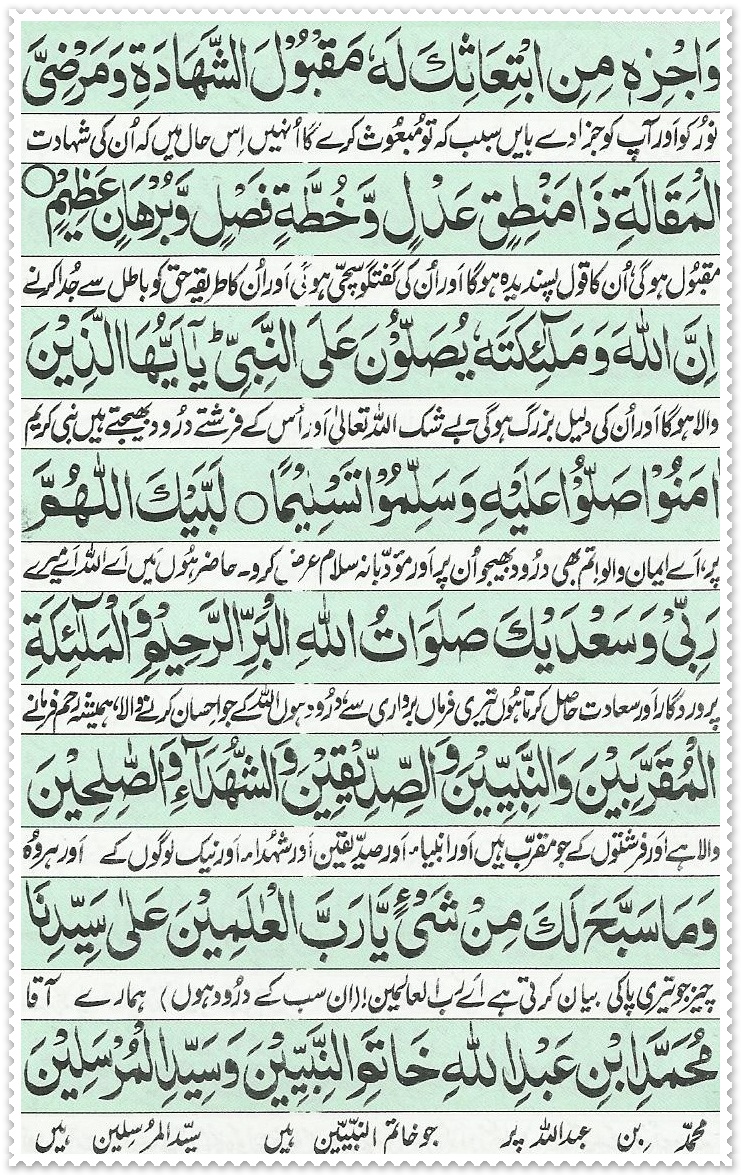 وَاجْزِهٖ مِنِ ابْتِعَاثِكَ لَهٗ مَقْبُوْلَ الشَّهَادَةِ وَمَرْضِىَّ
نور کو اور آپ کو جزا دے بایں سبب کہ تو مبعوث کرے گا اُنہیں اِس حال میں کہ اُن کی شہادت
الْمَقَالَةِ ذَا مَنْطِقٍ عَدْلٍ وَّخُطَّةٍ فَصْلٍ وَّبُرْهَانٍ عَظِيْمٍ ○
مقبول ہوگی اُن کا قول پسندیدہ ہوگا اور اُن کی گفتگو سچی ہوئی اور اُن کا طریقہ حق کو باطل سے جُدا کرنے
اِنَّ اللّٰهَ وَمَلٰٓئِكَتَهٗ يُصَلُّوْنَ عَلَى النَّبِىِّ ؕ يٰٓاَيُّهَا الَّذِيْنَ
والا ہوگا اور اُن کی دلیل بزرگ ہوگی۔ بے شک اللہ تعالیٰ اور اُس کے فرشتے درُود بھیجتے ہیں نبی کریم
اٰمَنُوْا صَلُّوْا عَلَيْهِ وَسَلِّمُوْا تَسْلِيْمًا ○ لَبَّيْكَ اللّٰهُمَّ
پر، اَے ایمان والو! تم بھی درُود بھیجو اُن پر اور مؤدّبانہ سلام عرض کرو۔ حاضر ہُوں میں اَے اللہ اَے میرے
رَبِّىْ وَسَعْدَيْكَ صَلَوَاتُ اللّٰهِ الْبَرِّ الرَّحِيْمِ وَالْمَلٰٓئِكَةِ
پروردگار اور سعادت حاصل کرتا ہُوں تیری فرماں برداری سے، درُود ہوں اللہ کے جو احسان کرنے والا، ہمیشہ رحم فرمانے
الْمُقَرَّبِيْنَ وَالنَّبِيّٖنَ وَالصِّدِّيْقِيْنَ وَالشُّهَدَآءِ وَالصّٰلِحِيْنَ
والا ہے اور فرشتوں کے جو مقرّب ہیں اور انبیاء اور صدیقین اور شہداء اور نیک لوگوں کے اور ہر وُہ
وَمَا سَبَّحَ لَكَ مِنْ شَىْءٍ يَّا رَبَّ الْعٰلَمِيْنَ عَلٰى سَيِّدِنَا
چیز جو تیری پاکی بیان کرتی ہے اَے ربّ العالمین! (ان سب کے درُود ہوں) ہمارے آقا
مُحَمَّدِ ابْنِ عَبْدِ اللّٰهِ خَاتَمِ النَّبِيّٖنَ وَسَيِّدِ الْمُرْسَلِيْنَ
محمّد بن عبداللہ پر جو خاتم النّبیّین ہیں سیّد المرسلین ہیں